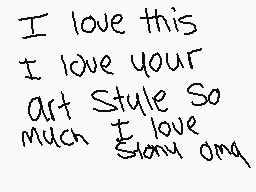 I love this
I love your
art style so
much I love
omg